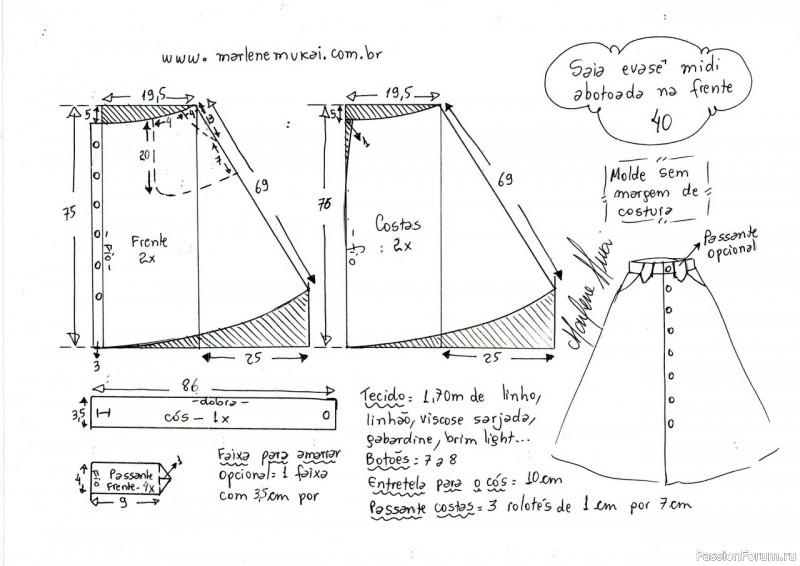 www.marlenemukai.com.br
Saia evasê midi
abotoada na frente
40
19,5
5
4
4
3
7
20
69
75
Frente
2x
fio
3
25
19,5
5
1
69
76
Costas
: 2x
fio
25
Molde sem
margem de
costura
Passante
opcional
Marlene Mukai
86
3,5
-dobra-
cós - 1x
Tecido= 1,70m de linho,
linhão, viscose sarjada,
gabardine, brim light...
Botões= 7 a 8
Entretela para o cós= 10cm
Passante costas= 3 rolotés de 1cm por 7cm
1
4
fio
Passante
Frente-4x
9
Faixa para amarrar
opcional= 1 faixa
com 3,5cm por
PassionForum.ru